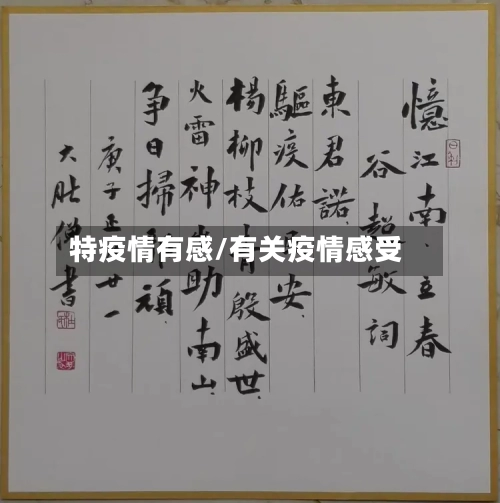 憶江南·立春
谷超敏詞
東君諾
驅疫佑 安
楊柳枝 殷盛世
火雷神 助南山
争日掃 頑
庚子正 廿一
大肚僧書
特疫情有感/有关疫情感受